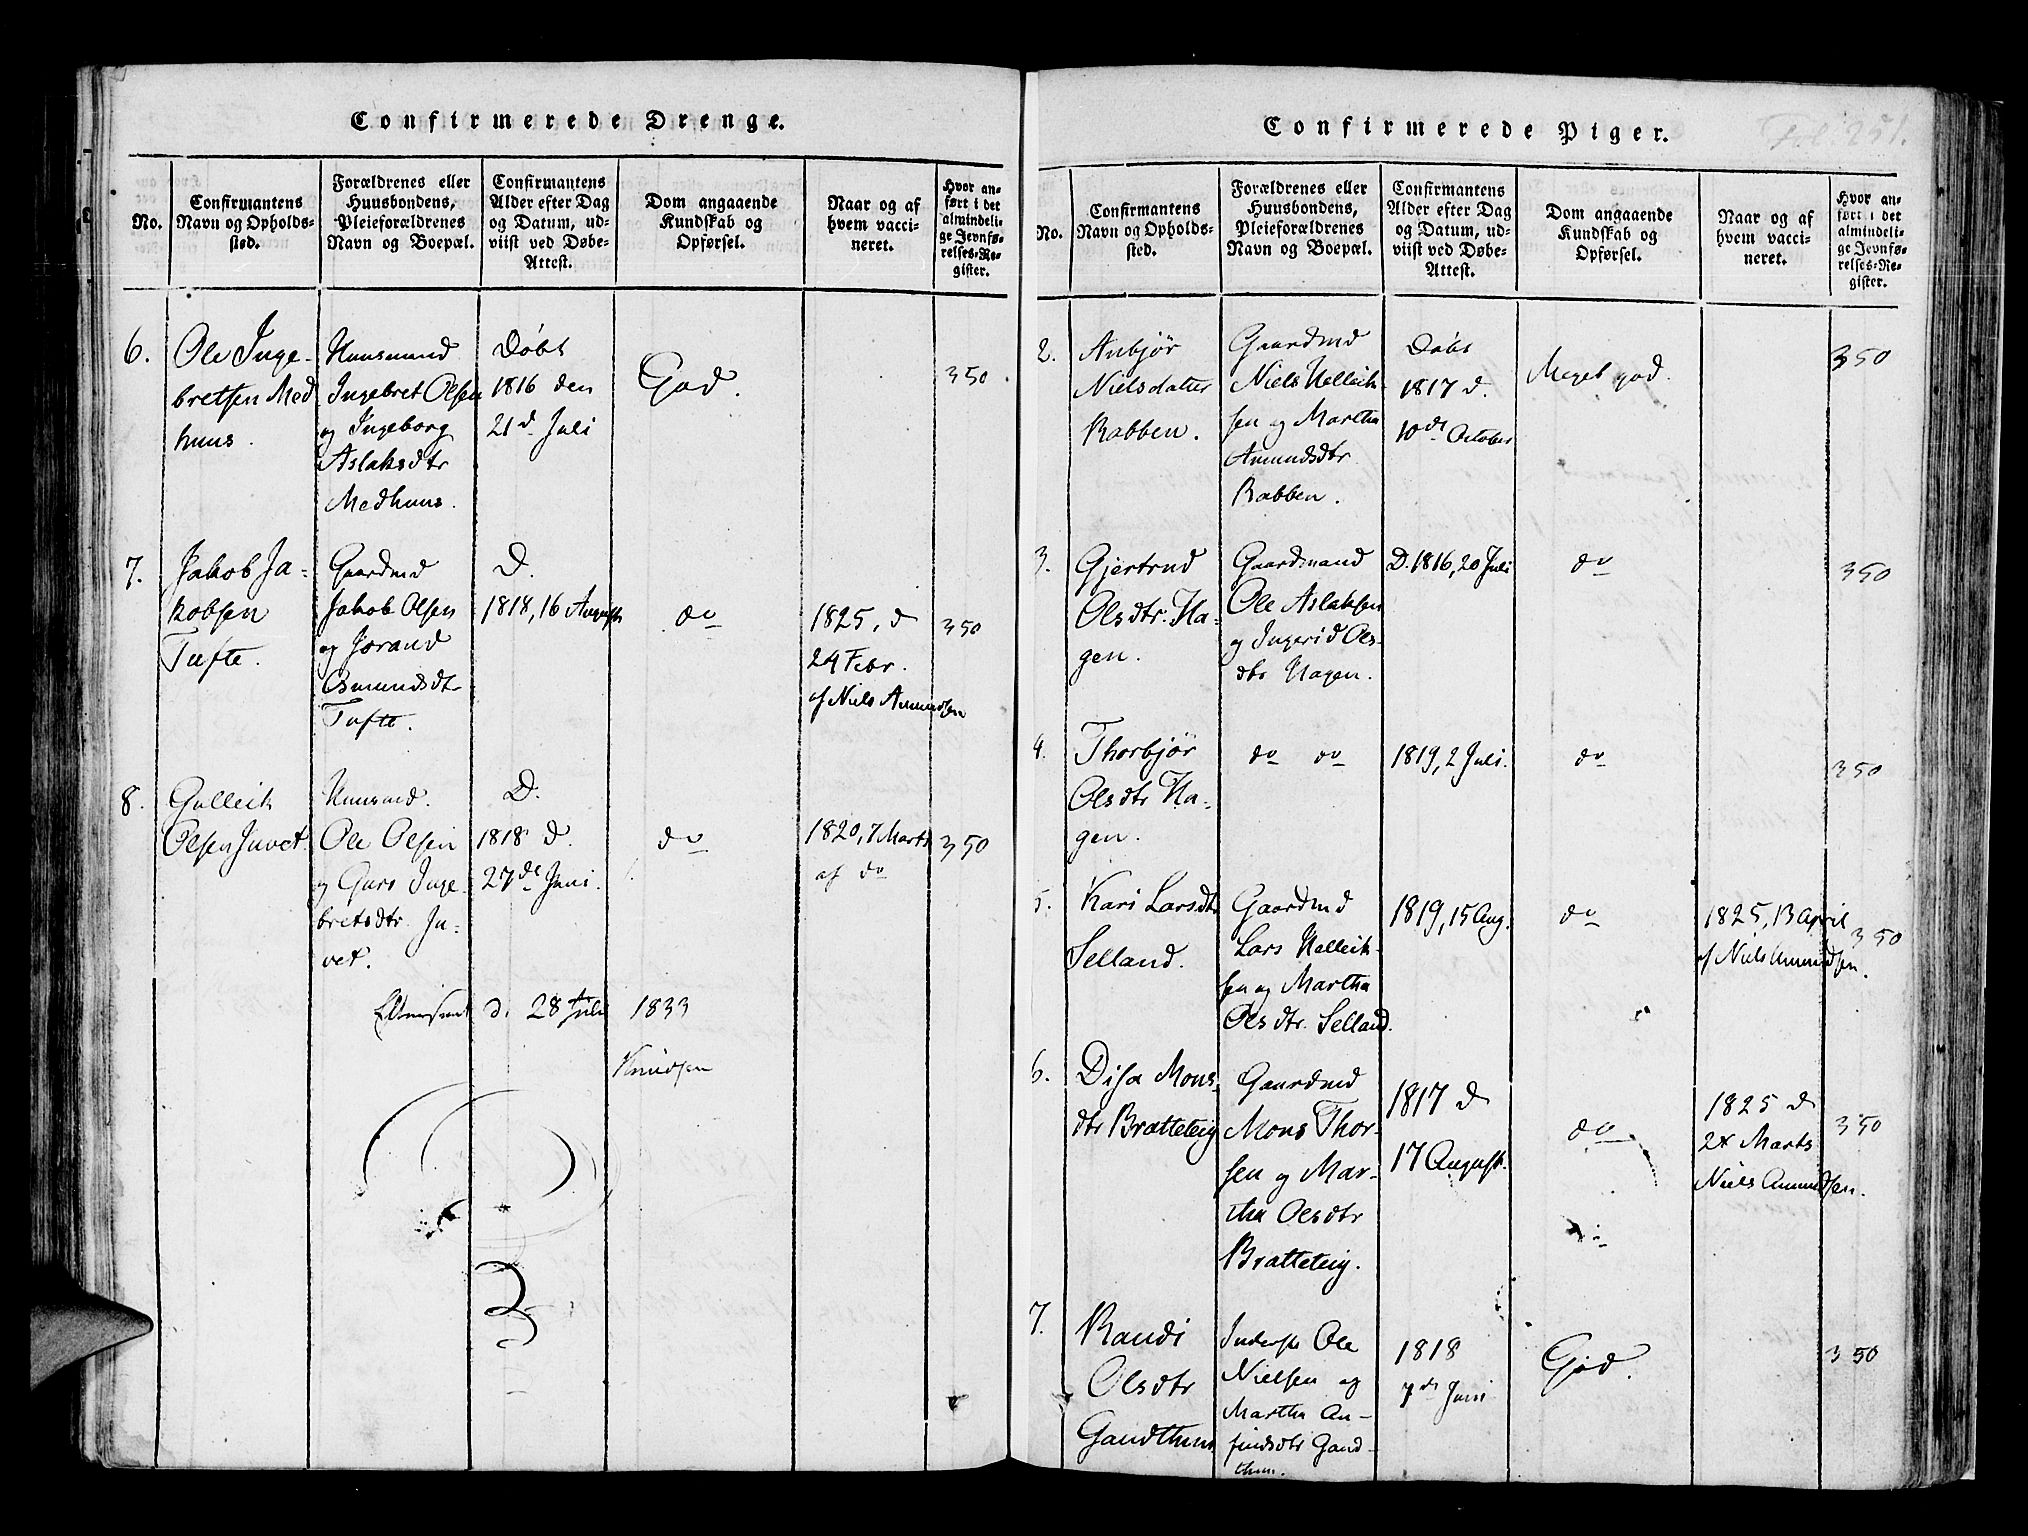 Confirmerede Drenge.
No.
Confirmantens
Navn og Opholds-
sted.
Forældrenes eller
Huusbondens,
Pleieforældrenes
Navn og Boepæl.
Confirmantens
Alder efter Dag
og Datum, ud-
viist ved Døbe-
Attest.
Dom angaaende
Kundskab og
Opførsel.
Naar og af
hvem vacci-
neret.
Hvor an-
ført i det
almindeli-
ge Jevnfø-
relses-Re-
gister.
6.
Ole Inge-
bretsen Med
huus.
Huusmand
Ingebret Olsen
og Ingeborg
Aslaksdtr
Medhuus.
Døbt
1816 den
21d Juli
God.
350.
7.
Jakob Ja-
kobsen
Tufte.
Gaardmd
Jakob Olsen
og Jorand
Osmundsdt
Tufte.
D.
1818, 16 August
do
1825, d
24 Febr.
af Niels Amundsen
350
8.
Gulleik
Olsen Juvet.
Huusmd.
Ole Olsen
og Guro Inge-
bretsdtr. Ju-
vet.
D.
1818 d.
27de Juni.
do
1820, 7 Marts
af do
350
d. 28 Juli 1833
Knudsen
Confirmerede Piger.
Fol. 251.
No.
Confirmantens
Navn og Opholds-
sted.
Forældrenes eller
Huusbondens,
Pleieforældrenes
Navn og Boepæl.
Confirmantens
Alder efter Dag
og Datum, ud-
viist ved Døbe-
Attest.
Dom angaaende
Kundskab og
Opførsel.
Naar og af
hvem vacci-
neret.
Hvor an-
ført i det
almindeli-
ge Jevnfø-
relses-Re-
gister.
2.
Anbjør
Nielsdatter
Rabben.
Gaardmd
Niels Helleik-
sen og Martha
Amundsdtr.
Rabben.
Døbt
1817 d.
10de October
Meget god.
350
3.
Gjertrud
Olsdtr. Ha-
gen.
Gaardmand
Ole Aslaksen
og Ingerid Ols-
dtr Hagen.
D. 1816, 20 Juli
do
350
4.
Thorbjør
Olsdtr Ha-
gen.
do do
1819, 2 Juli.
do
350
5.
Kari Larsdtr
Selland.
Gaardmd
Lars Helleik-
sen og Martha
Olsdtr. Selland.
1819, 15 Aug.
do
1825, 13 April
af Niels Amundsen.
350
6.
Disa Mons-
dtr Bratteteig
Gaardmd
Mons Thor-
sen og Mar-
tha Olsdtr
Bratteteig.
1817 d
17 August.
do
1825 d
24 Marts
Niels Amundsen.
350
7.
Randi
Olsdtr
Gandthun
Inderst Ole
Nielsen og
Martha An-
findsdtr Gand-
thun.
1818
7de Juni
God.
350